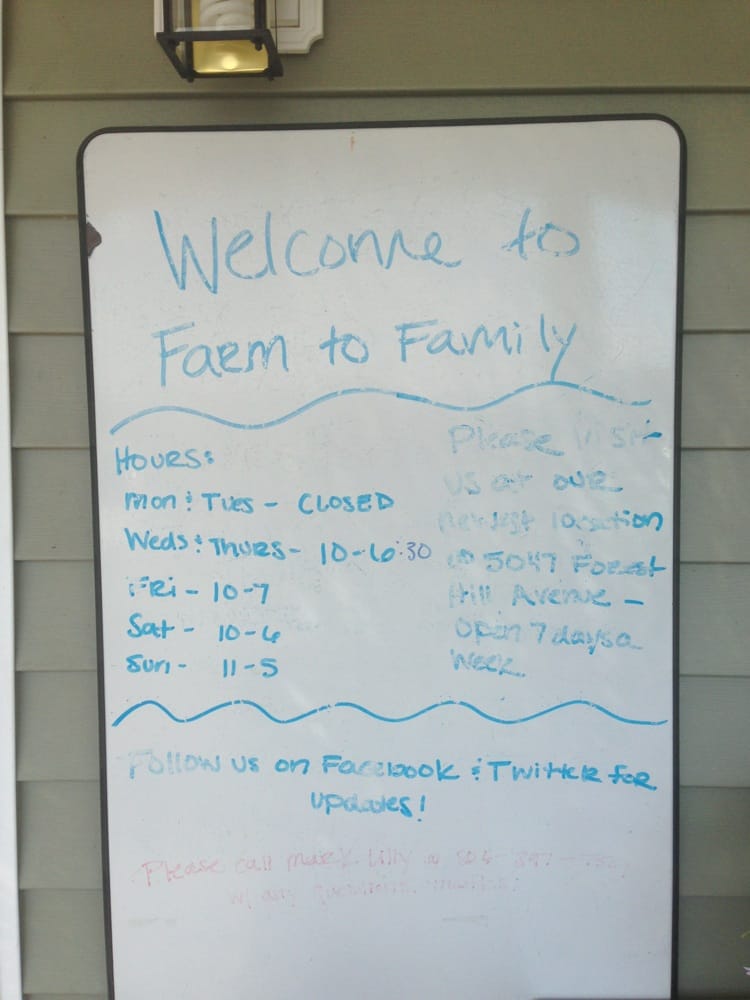 Welcome to
Farm to Family
Hours:
Mon & Tues - CLOSED
Weds & Thurs - 10-6:30
Fri - 10-7
Sat - 10-6
Sun - 11-5
Please visit
us at our
newest location
@ 5047 Forest
Hill Avenue -
Open 7 days a
Week.
Follow us on Facebook & Twitter for
updates!
Please call Mark Lilly @
w/ any